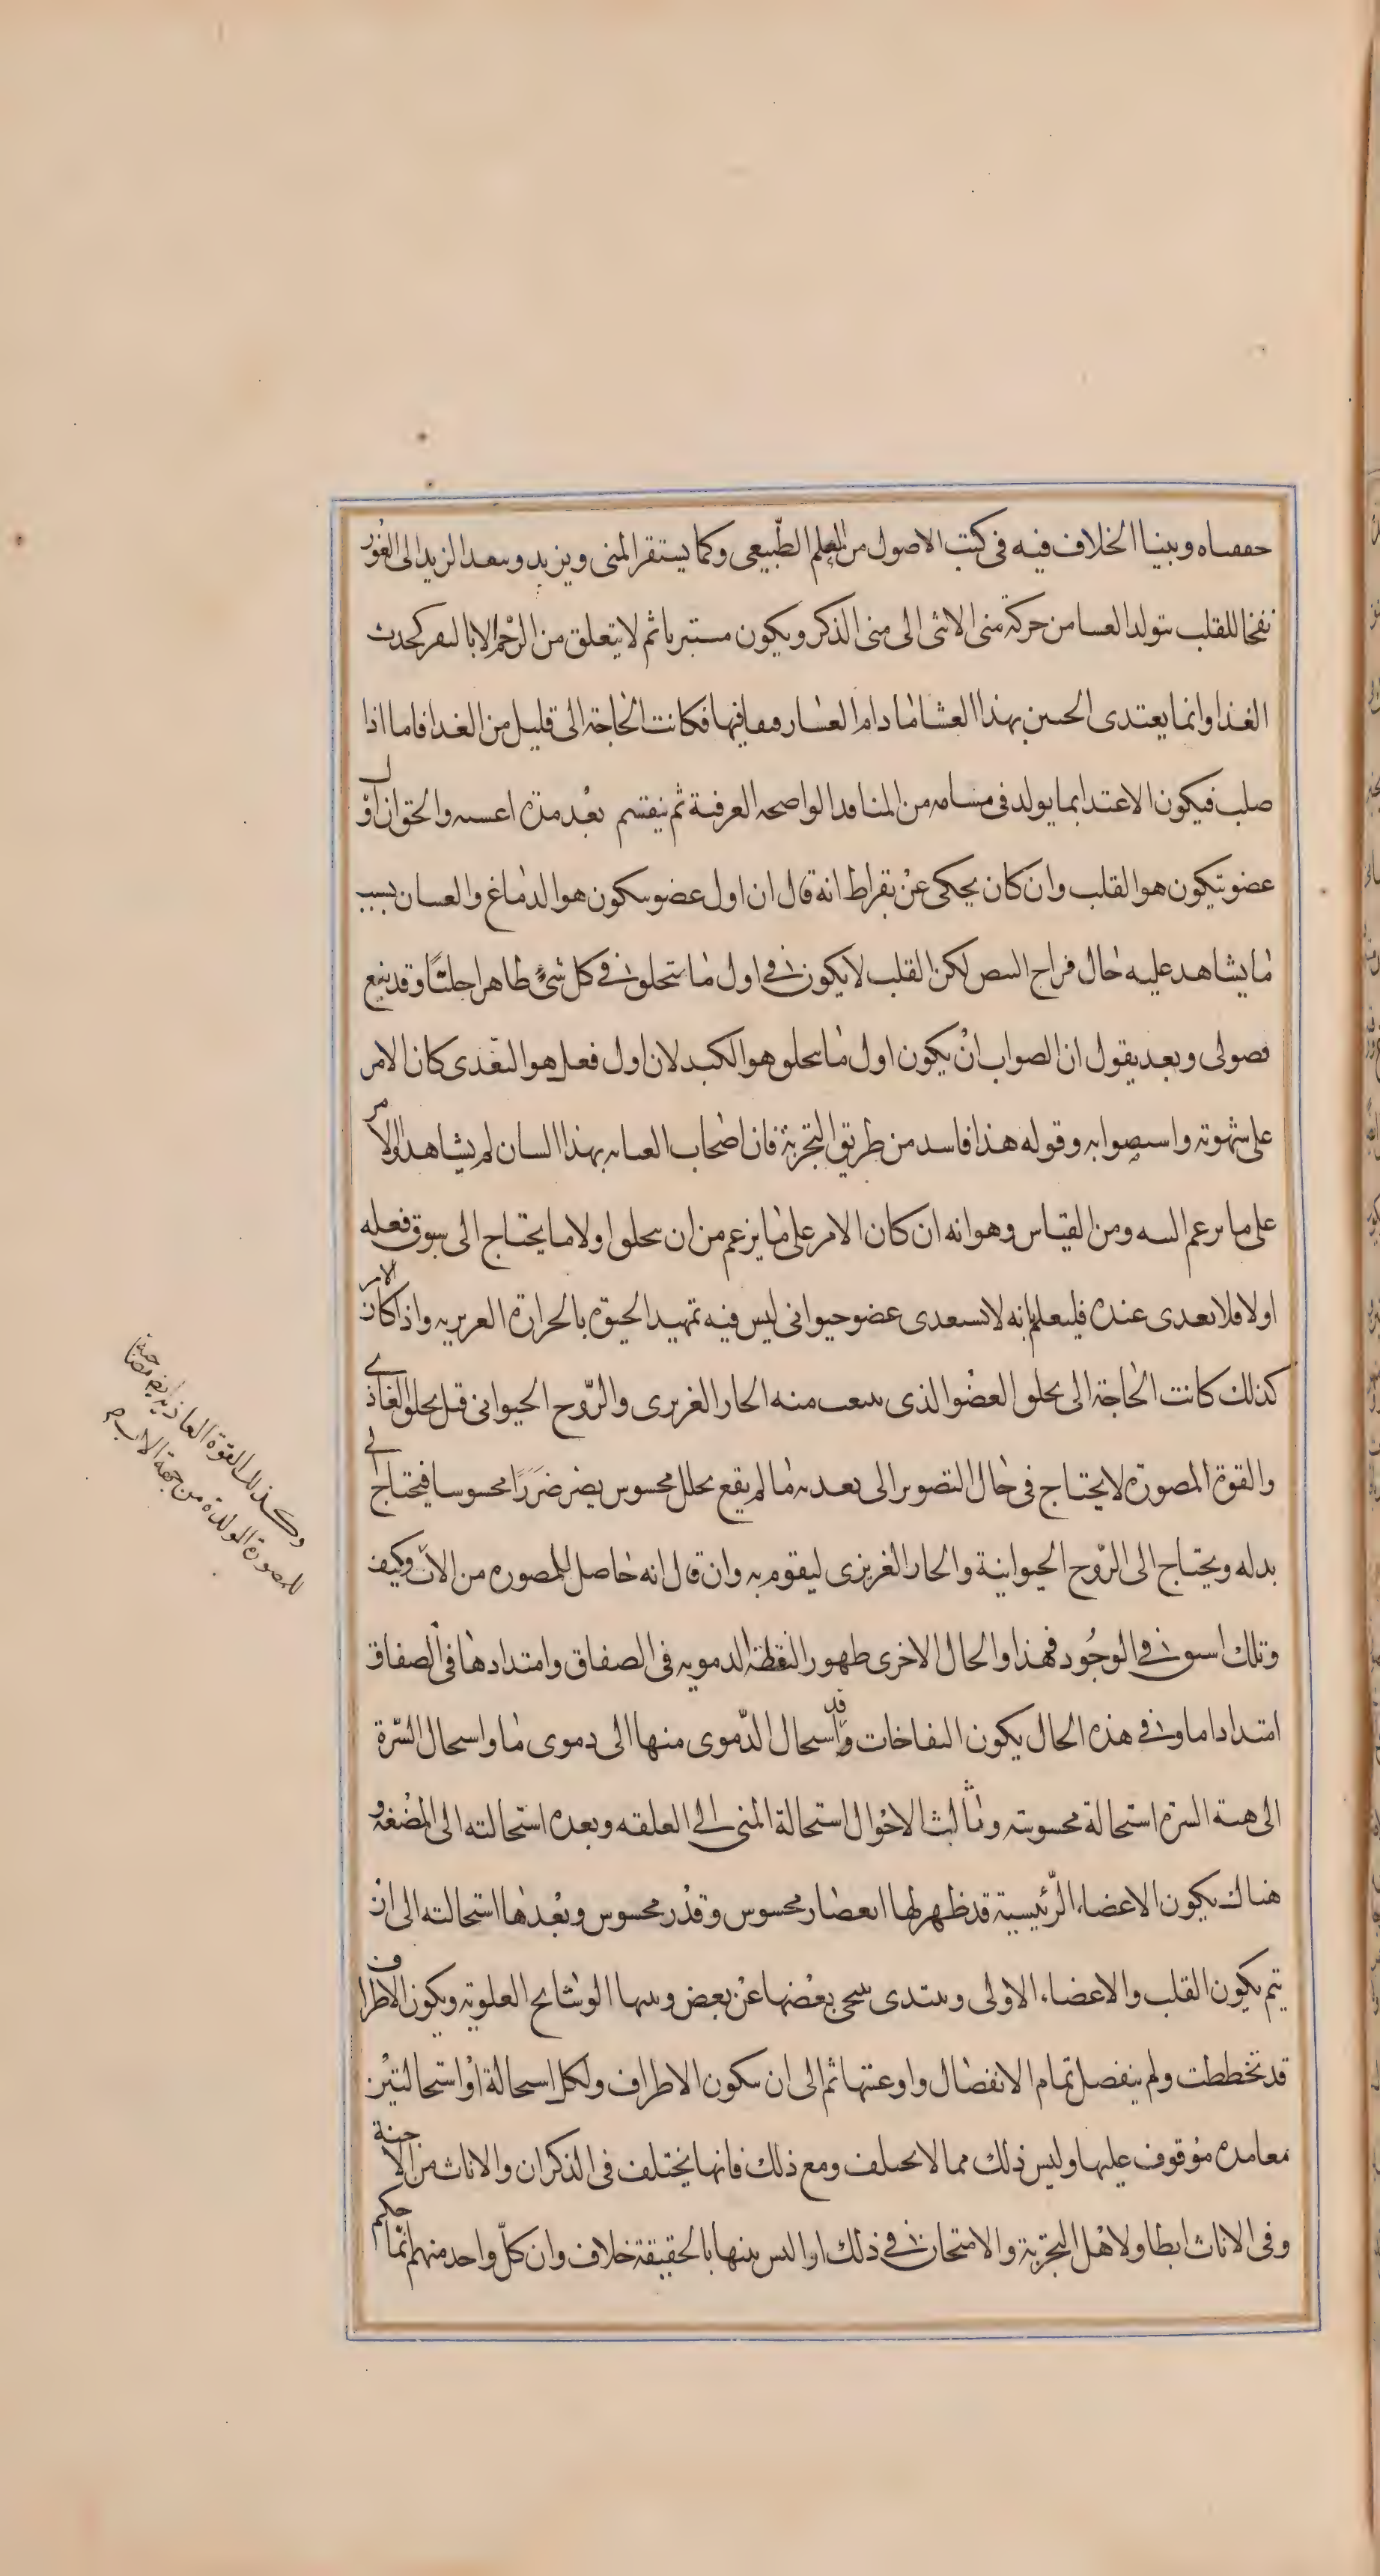 حققناه وبينا الخلاف فيه فى كتب الاصول من العلم الطّبيعى وكما يستقر المنى ويزبد وينفذ الزبد الى الغور
نفخا للقلب يتولد الغشا من حركة منى الانثى الى منى الذكر ويكون متبريا ثم لا يتعلق من الرّحم الا بالنقر لجذب
الغذا وانما يغتدى الجنين بهذا الغشا ما دام الغشا رقيقا فيها فكانت الحاجة الى قليل من الغدا فاما اذا
صلب فيكون الاغتدا بما يولد فى مسامه من المنافد الواضحه العرقية ثم ينقسم بعد مدة اغشيه والحق ان اوّل
عضو يتكون هو القلب وان كان يحكى عن بقراط انه قال ان اول عضو يتكون هو الدماغ والعينان بسبب
ما يشاهد عليه حال فراخ البيض لكن القلب لا يكون فى اول ما يتخلق فى كل شئٍ ظاهرا جليًا وقد نبغ
فضولى وبعد يقول ان الصواب ان يكون اول ما يتخلق هو الكبد لان اول فعله هو التغدى كان الامر
على شهوته واستصوابه وقوله هذا فاسد من طريق التجربة فان اصحاب العنايه بهذا الشان لم يشاهدوا الامر
على ما يزعم البته ومن القياس وهو انه ان كان الامر على ما يزعم من ان يتخلق اولا ما يحتاج الى سبوق فعله
اولا فلا يغدى عنده فليعلم انه لا يتغدى عضو حيوانى ليس فيه تمهيد الحيوة بالحرارة الغريزيه واذا كان الامر
كذلك كانت الحاجة الى تخلق العضو الذى ينبعث منه الحار الغريزى والرّوح الحيوانى قبل تخلق الغاذى
والقوة المصورة لا يحتاج فى حال التصوير الى تغديه ما لم يقع تحلل محسوس يضر ضررًا محسوسا فيحتاج الى
بدله ويحتاج الى الرّوح الحيوانية والحار الغريزى ليقوم به وان قال انه حاصل للمصوره من الاب وكيف
وتلك اسبق فى الوجود فهذا والحال الاخرى ظهور النقطة الدمويه فى الصفاق وامتدادها فى الصفاق
امتدادا ما وفى هذه الحال يكون النفاخات وقد استحال الدّموى منها الى دموى ما واستحال السّرة
الى هيئة السرة استحالة محسوسة وثالث الاحوال استحالة المنى الى العلقه وبعده استحالته الى المضغة و
هناك يكون الاعضاء الرّئيسية قد ظهر لها انفصال محسوس وقدر محسوس وبعدها استحالته الى ان
يتم تكون القلب والاعضاء الاولى ويبتدى تنحى بعضها عن بعض ويليها الوشائج العلوية ويكون الاطراف
قد تخططت ولم ينفصل تمام الانفصال واوعيتها ثم الى ان يتكون الاطراف ولكل استحالة او استحالتين
مدة موقوف عليها وليس ذلك مما لا يختلف ومع ذلك فانها يختلف فى الذكران والاناث من الاجنة
وفى الاناث ابطا ولاهل التجربة والامتحان فى ذلك ارا ليس بينها بالحقيقة خلاف وان كلّ واحد منهم انّما حكم
وكذلك القوة الغاذية ايضا مصاحبة
للمصورة المولدة من جهة الاب